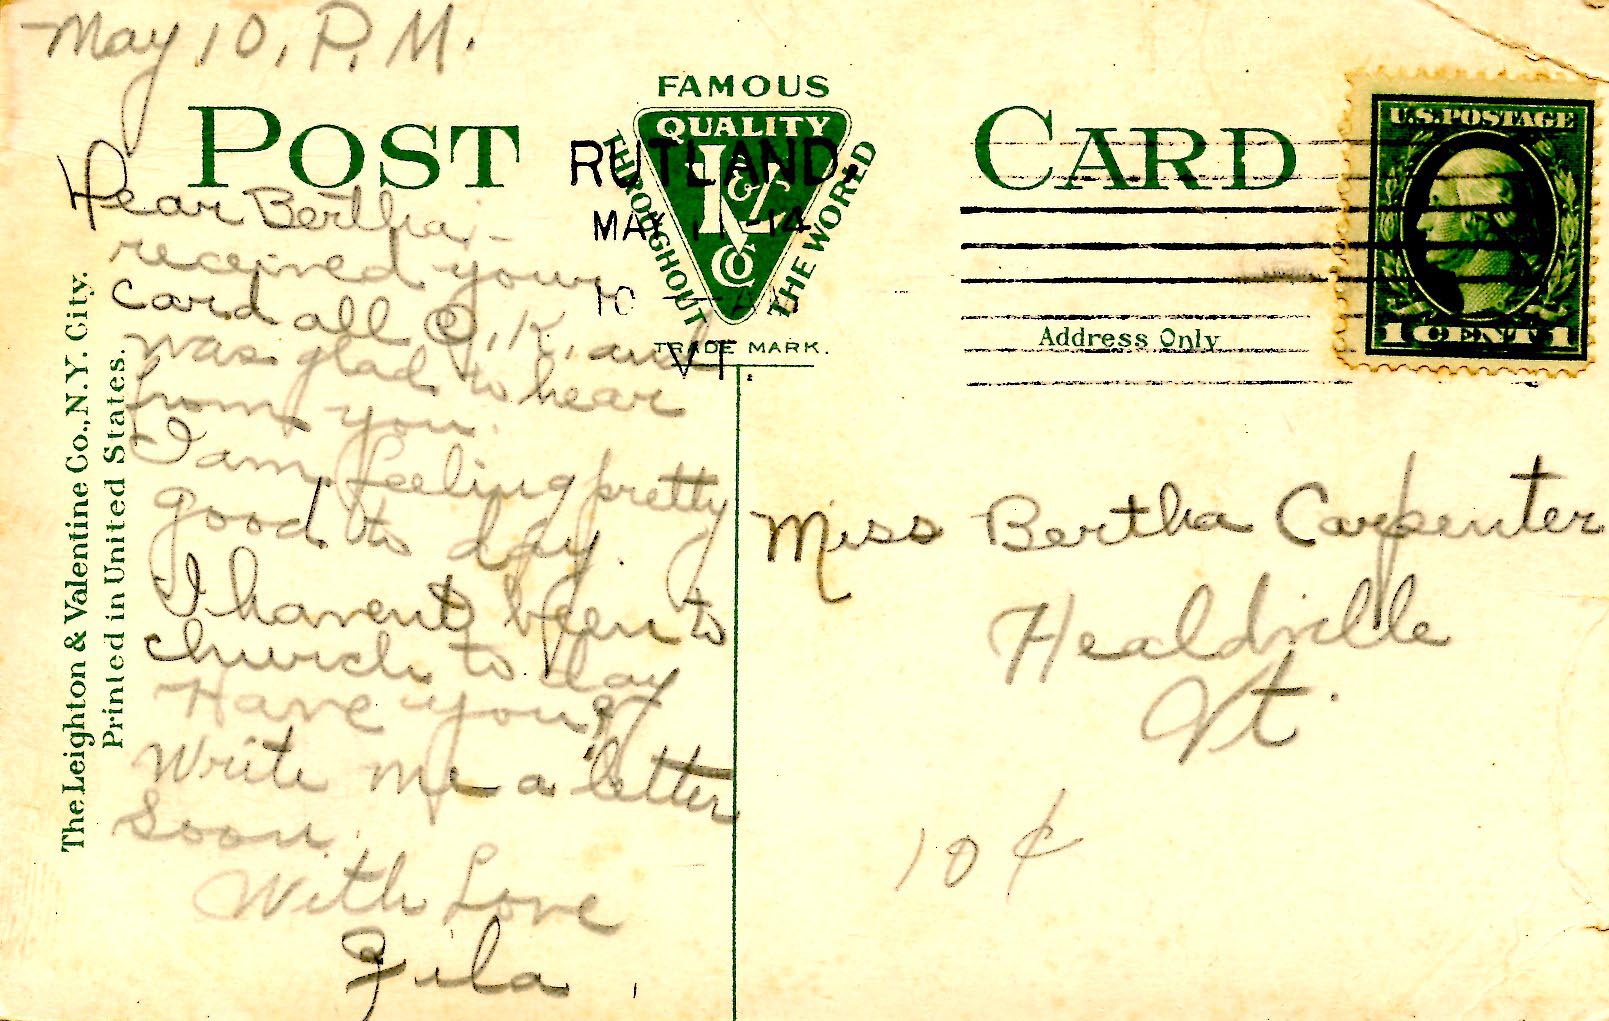 May 10, P.M.
POST CARD
FAMOUS
QUALITY
THROUGHOUT THE WORLD
L & V Co
TRADE MARK.
RUTLAND,
MAY 11 -14
10 - A
VT.
U.S. POSTAGE
1 CENT 1
Address Only
Dear Bertha,-
received your
card all O.K. and
was glad to hear
from you.
I am feeling pretty
good to day.
I havent been to
church to day
Have you?
Write me a letter
Soon.
With Love
Zila.
Miss Bertha Carpenter
Healdville
Vt.
10 ¢
The Leighton & Valentine Co., N.Y. City.
Printed in United States.